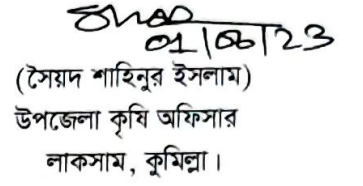 01/06/23
(সৈয়দ শাহিনুর ইসলাম)
উপজেলা কৃষি অফিসার
লাকসাম, কুমিল্লা।